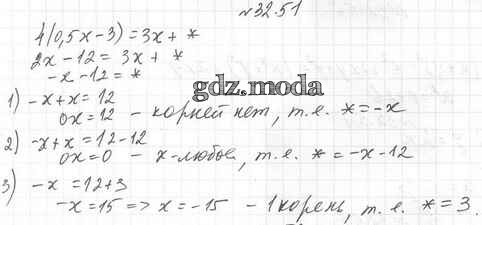 №32.51
4(0,5x-3)=3x+*
2x-12=3x+*
-x-12=*
gdz.moda
1) -x+x=12
0x=12 - корней нет, т.е. *=-x
2) -x+x=12-12
0x=0 - x-любое, т.е. *=-x-12
3) -x=12+3
-x=15=>x=-15 - 1 корень, т.е. *=3.